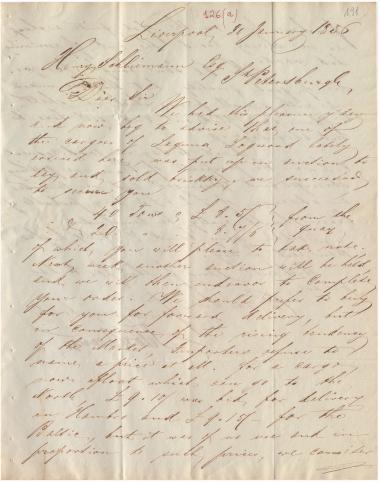 126(a)
191
Liverpool, January 1856
Henry Schliemann Esq St Petersburgh,
Dear Sir
We had this pleasure
and now beg to advise that, one of
the cargoes of Laguna Logwood lately
arrived here was put up in auction to
day and sold briskly, we succeeded
to secure you
40 Tons @ £ 8.5/ from the
& 20 " " quay
of which, you will please to take note.
Next week another auction will be held
and we will then endeavor to complete
your order. We should prefer to buy
for you for forward delivery, but
in consequence of the rising tendency
of the Market, Importers refuse to
name a price at all. For a cargo
now afloat which can go to the
North £ 9.10/ was bid for delivery
in Hambro and £ 9.15/ for the
Baltic, but it was of no use and in
proportion to such prices, we consider